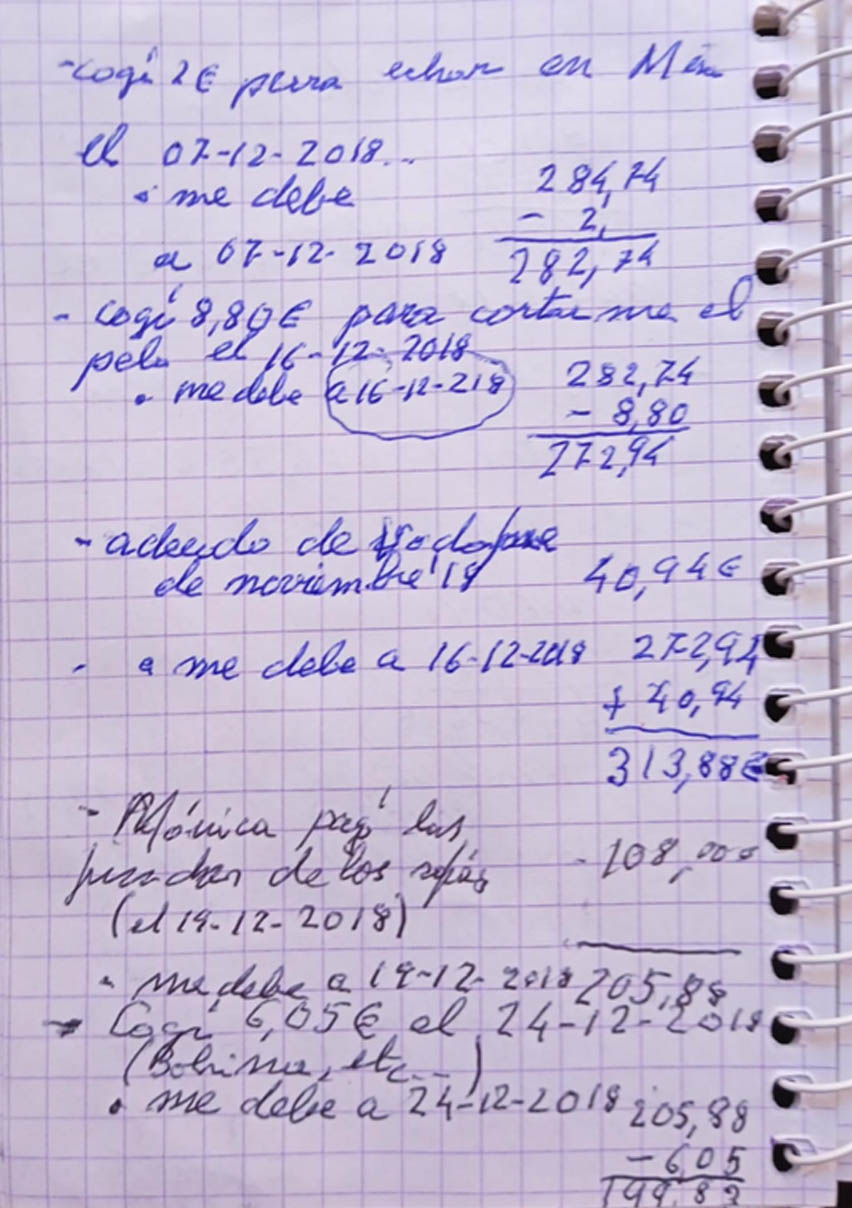 - cogí 2€ para echar en
el 07-12-2018...
• me debe 284,74
- 2,
a 07-12-2018 282,74
- cogí 8,80€ para cortarme el
pelo el 16-12-2018
• me debe a 16-12-218 282,74
- 8,80
272,94
- adeudo de Vodafone
de noviembre'18 40,94€
• me debe a 16-12-2018 272,94
+ 40,94
313,88€
- Mónica pagó las
de los - 108,000
(el 19-12-2018)
• me debe a 19-12-2018 205,88
- Cogí 6,05€ el 24-12-2018
(Bobina, etc...)
• me debe a 24-12-2018 205,88
- 6,05
199,83